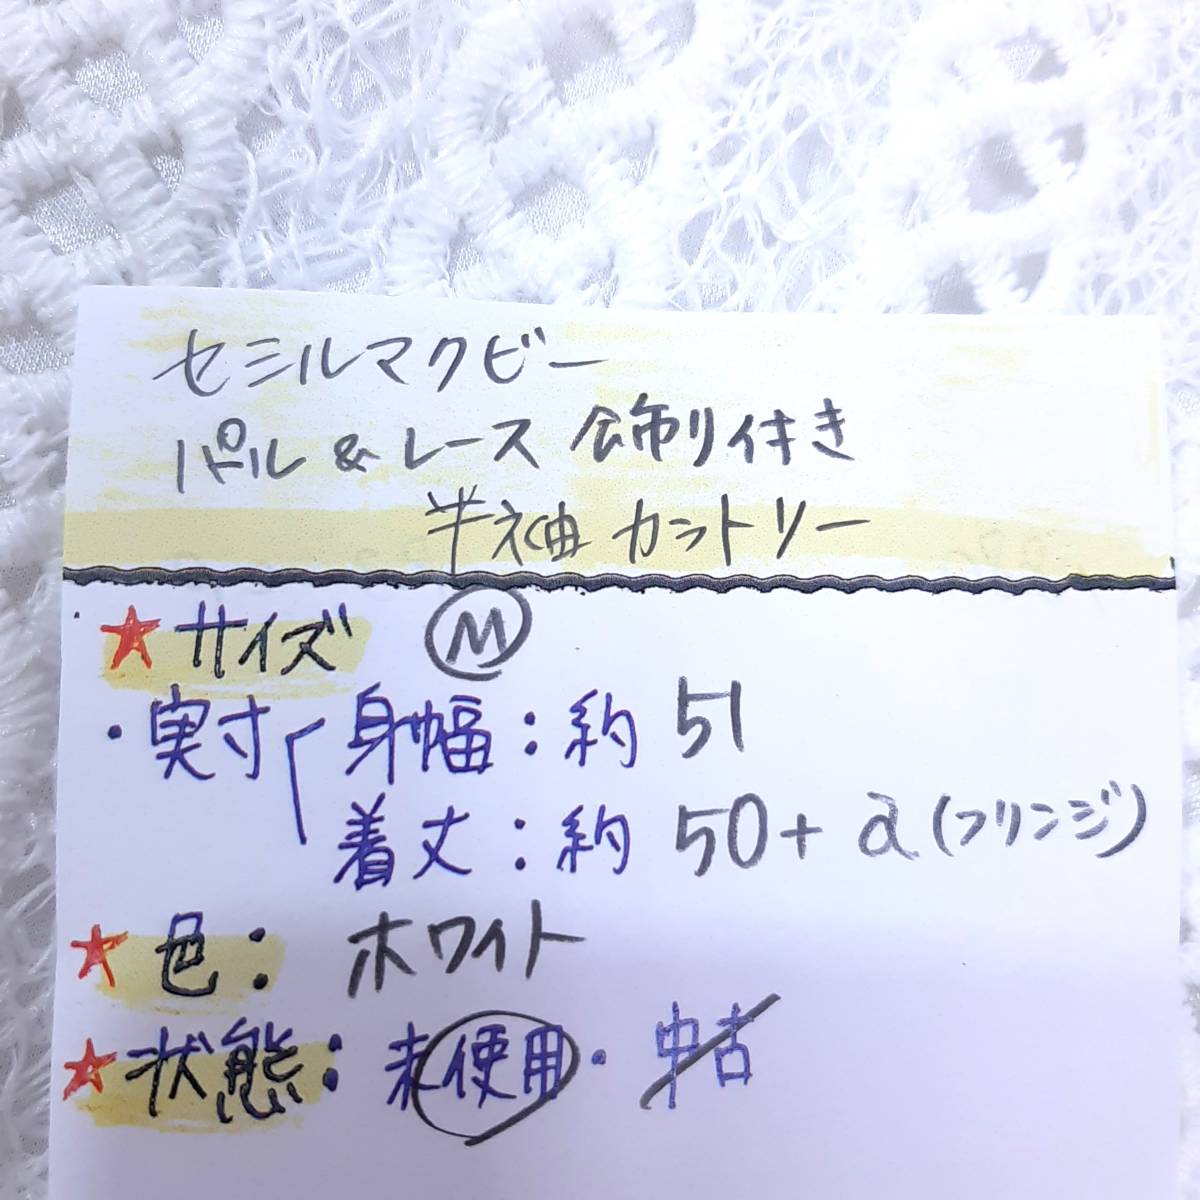 セシルマクビー
パール&レース 飾り付き
半袖 カットソー
★ サイズ Ⓜ
・実寸 身幅:約 51
着丈:約 50+α(フリンジ)
★ 色: ホワイト
★ 状態: 未使用・中古